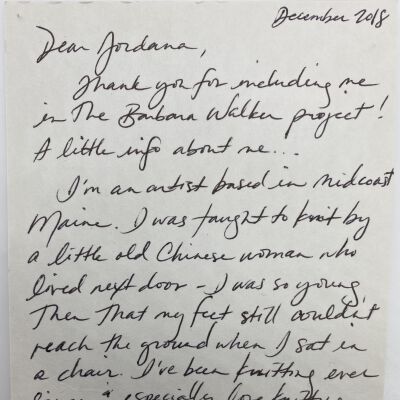 December 2018
Dear Jordana,
Thank you for including me
in The Barbara Walker project!
A little info about me...
I'm an artist based in Midcoast
Maine. I was taught to knit by
a little old Chinese woman who
lived next door - I was so young
Then That my feet still couldn't
reach the ground when I sat in
a chair. I've been knitting ever
especially love knitting